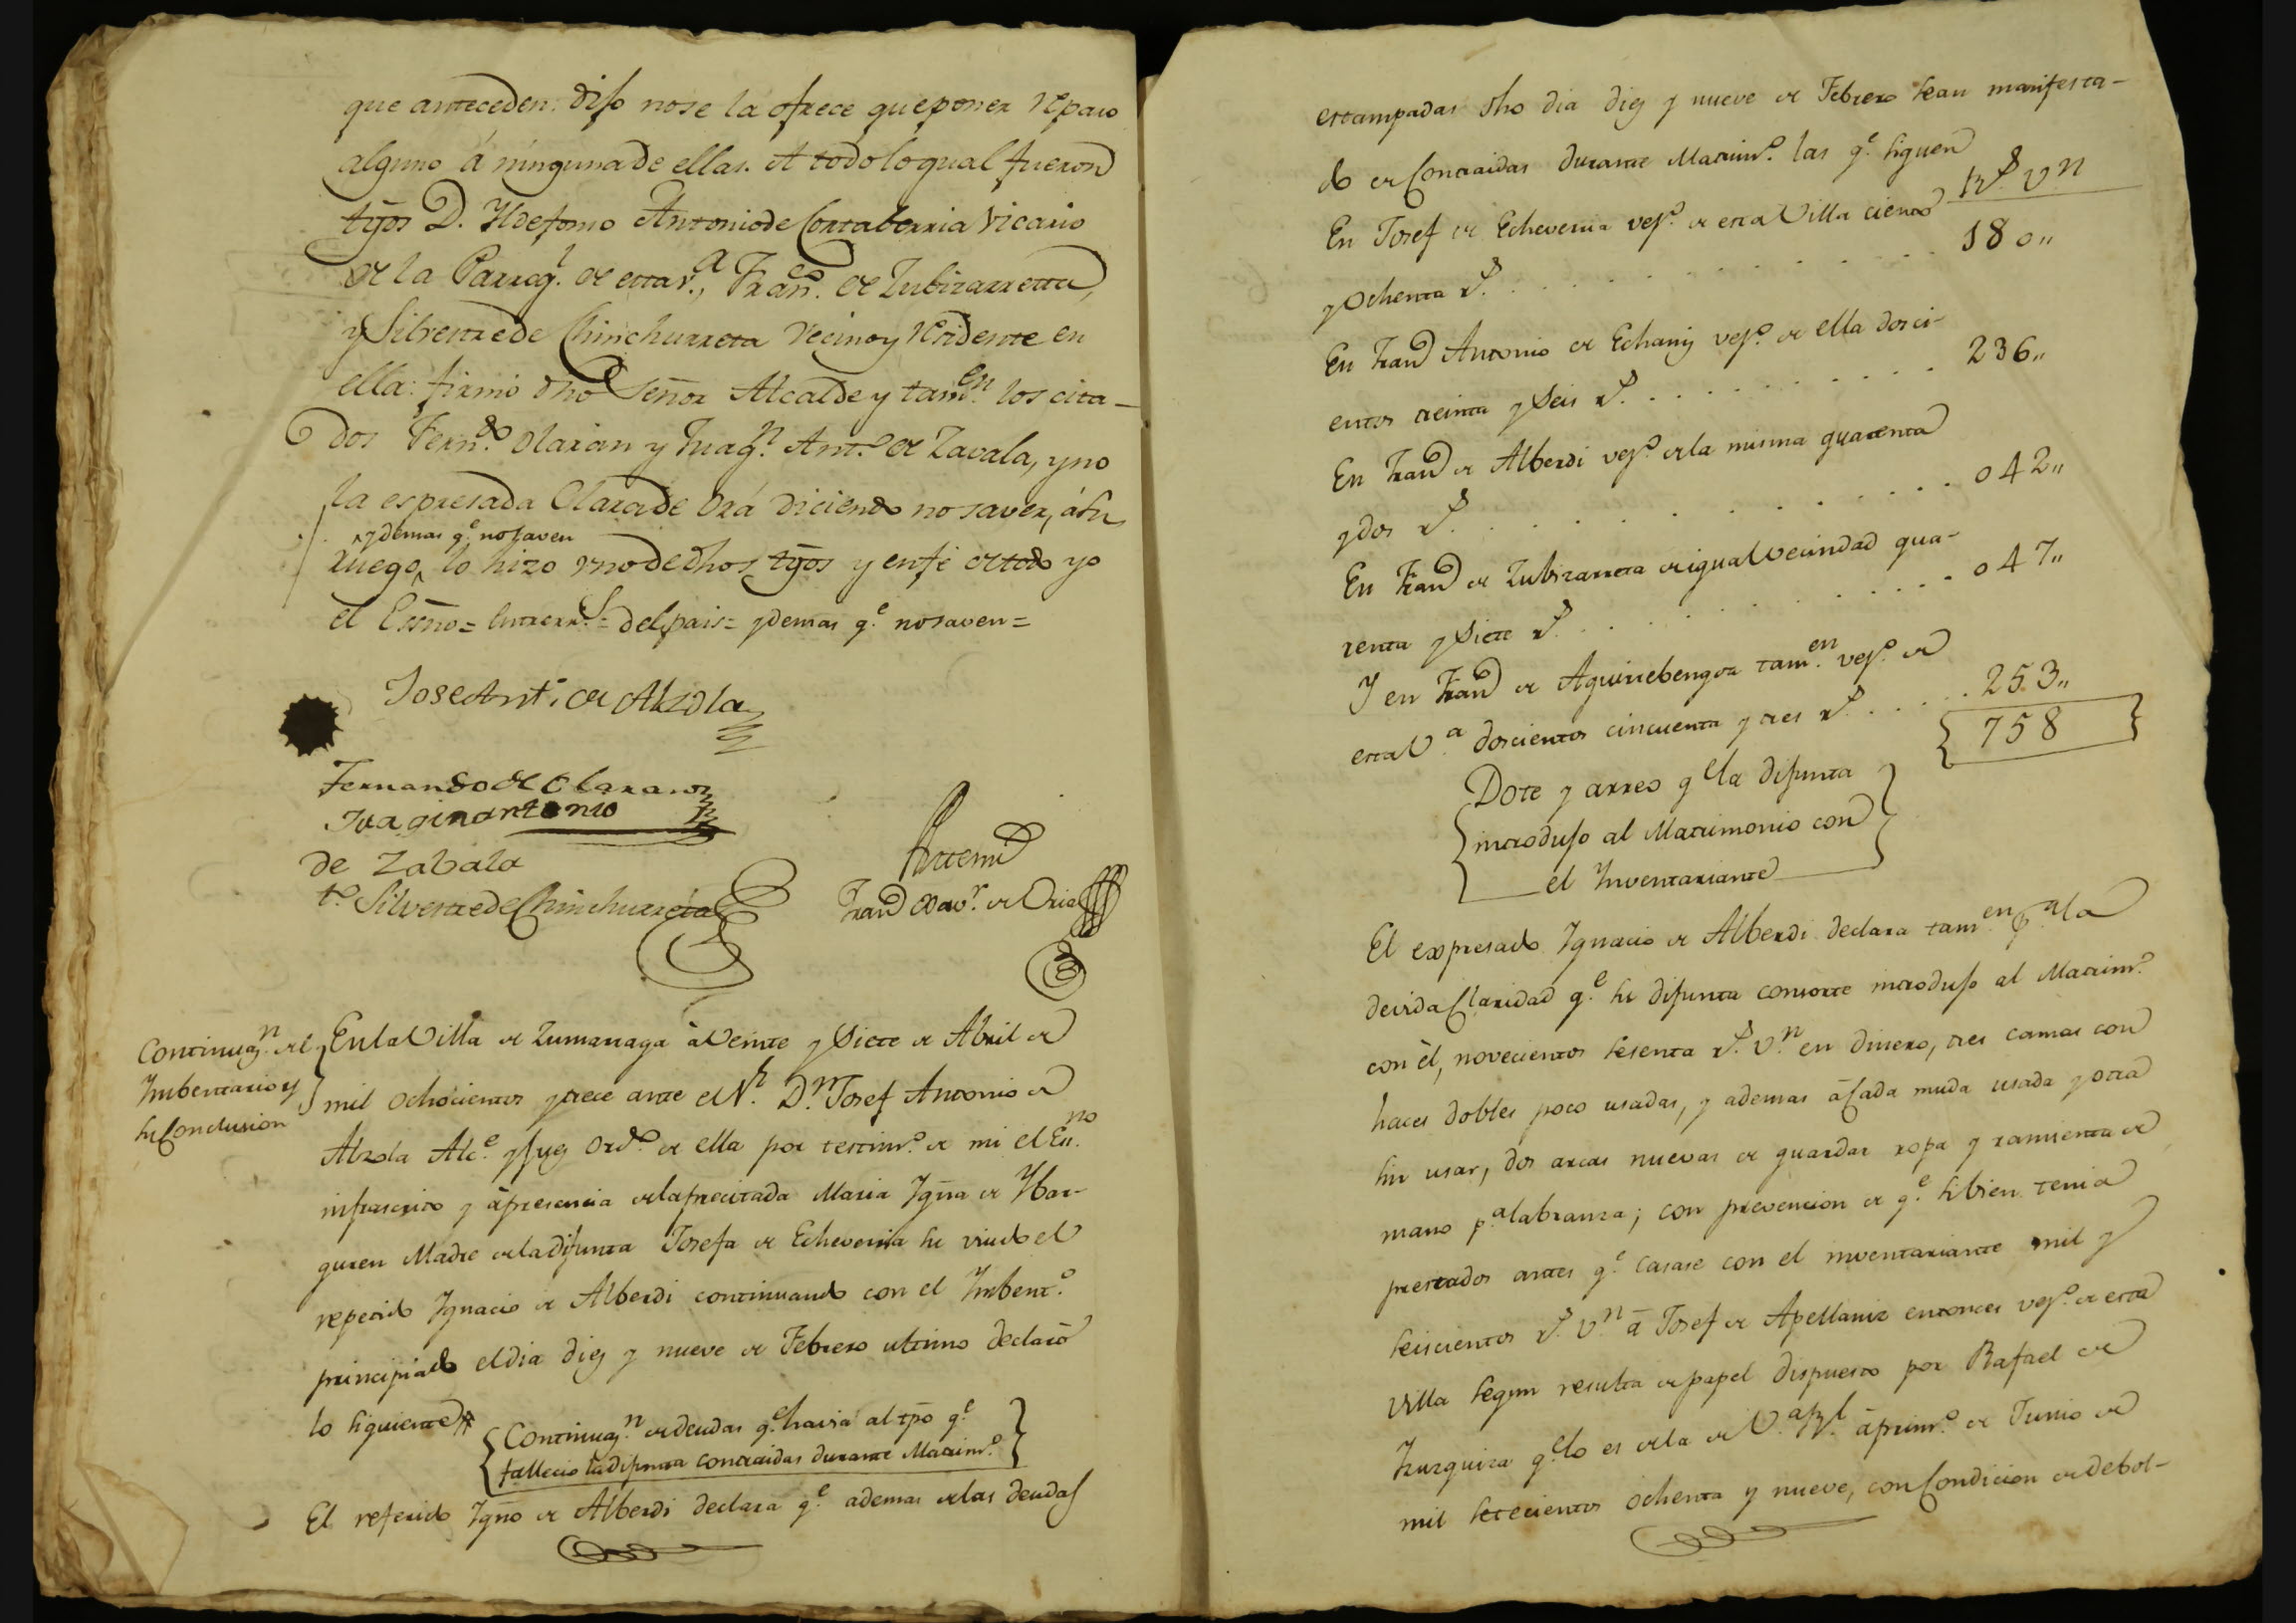 que anteceden: dijo nose la ofrece queponer reparo
alguno á ningunade ellas. A todo loqual fueron
tg̃os D. Yldefonso Antoniode Cortaberria Vicario
de la Parroq.l de esta v.a, Fran.co de Zubizarretta,
y Silvestrede Chinchurreta Vecinoy residente en
ella: firmó dho Señor Alcalde y tamb.en los cita-
dos Fern.do Olaran y Juaq.n Ant.o de Zavala, y no
la espresada Clarade Orá diciendo no saver, á su
y demas q.e no saven
ruego, lo hizo vno de dhos tg̃os y enfé de todo yo
el Essno = Entrerr.s = del pais = y demas q.e no saven =
Jose Ant.o de Alzola
Fernando de Olaran
Juaqin antonio
de Zabala
t.o Silvestre de Chinchurreta
Antemi
Fran.co Xav.r de Oria
Continuaz.n del
Imbentario y
su Conclusion
En la Villa de Zumarraga á Veinte y Siete de Abril de
mil ochocientos y trece ante el S.r D.n Josef Antonio de
Alzola Alc.e y Juez Ord.o de ella por testim.o de mi el Es.no
infrascrito y á presencia de la precitada Maria Ygña de Ybar-
guren Madre de la difunta Josefa de Echeverria su viudo el
repetido Ygnacio de Alberdi continuando con el Imbent.o
principiado el dia diez y nueve de Febrero ultimo declaró
lo siguiente
Continuaz.n de deudas q.e havia al tpõ q.e
fallecio la difunta contraidas durante Matrim.o
El referido Ygnõ de Alberdi declara q.e ademas de las deudas
estampadas dho dia diez y nueve de Febrero sean manifesta-
do de Contraidas durante Matrim.o las q.e siguen
R.s v.n
En Josef de Echeverria vez.o de esta Villa ciento
y Ochenta r.s . . . . . . . . . . 180,,
En Fran.co Antonio de Echaniz vez.o de ella dosci-
entos treinta y Seis r.s . . . . . . . . . 236,,
En Fran.co de Alberdi vez.o de la misma quarenta
y dos r.s . . . . . . . . . . 042,,
En Fran.co de Zubizarreta de igual vecindad qua-
renta y Siete r.s . . . . . . . . . 047,,
Y en Fran.co de Aguirrebengoa tam.en vez.o de
esta V.a doscientos cincuenta y tres r.s . . . . 253,,
758
Dote y arreo q.e la difunta
introdujo al Matrimonio con
el Inventariante
El expresado Ygnacio de Alberdi declara tam.en p.a la
devida Claridad q.e su difunta consorte introdujo al Matrim.o
con él, novecientos sesenta r.s v.n en dinero, tres camas con
haces dobles poco usadas, y ademas á Cada muda usada y otra
sin usar, dos arcas nuevas de guardar ropa y ramienta de
mano p.a labranza; con prevencion de q.e si bien tenia
prestados antes q.e casase con el inventariante mil y
seiscientos r.s v.n á Josef de Apellaniz entonces vez.o de esta
Villa segun resulta de papel dispuesto por Rafael de
Yurquiza q.e lo es de la de V.a á prim.o de Junio de
mil setecientos ochenta y nueve, con Condicion de debol-